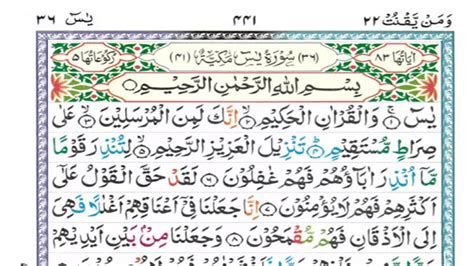 وَمَنْ يَّقْنُتْ ٢٢ ٤٤١ يٰسٓ ٣٦
اٰيَاتُهَا ٨٣ (٣٦) سُوْرَةُ يٰسٓ مَكِّيَّةٌ (٤١) رُكُوْعَاتُهَا ٥
بِسْمِ اللّٰهِ الرَّحْمٰنِ الرَّحِيْمِ
يٰسٓ ۝١ وَالْقُرْاٰنِ الْحَكِيْمِ ۝٢ اِنَّكَ لَمِنَ الْمُرْسَلِيْنَ ۝٣ عَلٰى
صِرَاطٍ مُّسْتَقِيْمٍ ۝٤ تَنْزِيْلَ الْعَزِيْزِ الرَّحِيْمِ ۝٥ لِتُنْذِرَ قَوْمًا
مَّاۤ اُنْذِرَ اٰبَآؤُهُمْ فَهُمْ غٰفِلُوْنَ ۝٦ لَقَدْ حَقَّ الْقَوْلُ عَلٰۤى
اَكْثَرِهِمْ فَهُمْ لَا يُؤْمِنُوْنَ ۝٧ اِنَّا جَعَلْنَا فِيْۤ اَعْنَاقِهِمْ اَغْلٰلًا فَهِيَ
اِلَى الْاَذْقَانِ فَهُمْ مُّقْمَحُوْنَ ۝٨ وَجَعَلْنَا مِنْۢ بَيْنِ اَيْدِيْهِمْ